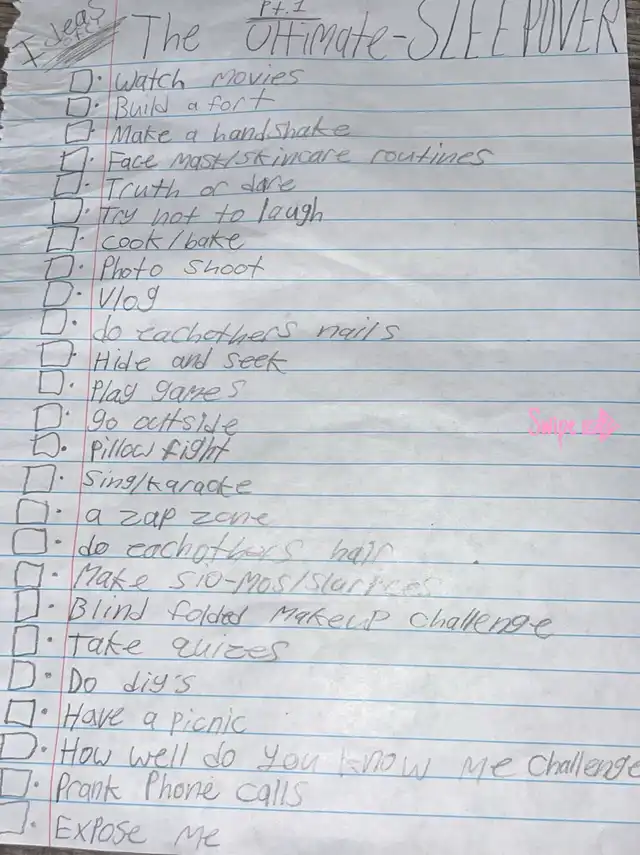 Ideas
Pt.1
The Ultimate-SLEEPOVER
Watch movies
Build a fort
Make a handshake
Face mask/skincare routines
Truth or dare
Try not to laugh
cook/bake
Photo shoot
Vlog
do eachothers nails
Hide and seek
Play games
go outside
Pillow fight
Sing/karaoke
a zap zone
do eachothers hair
Make slo-mos/
Blind folded makeup challenge
Take quizes
Do diy's
Have a picnic
How well do you know me challenge
Prank Phone calls
Expose me
Swipe